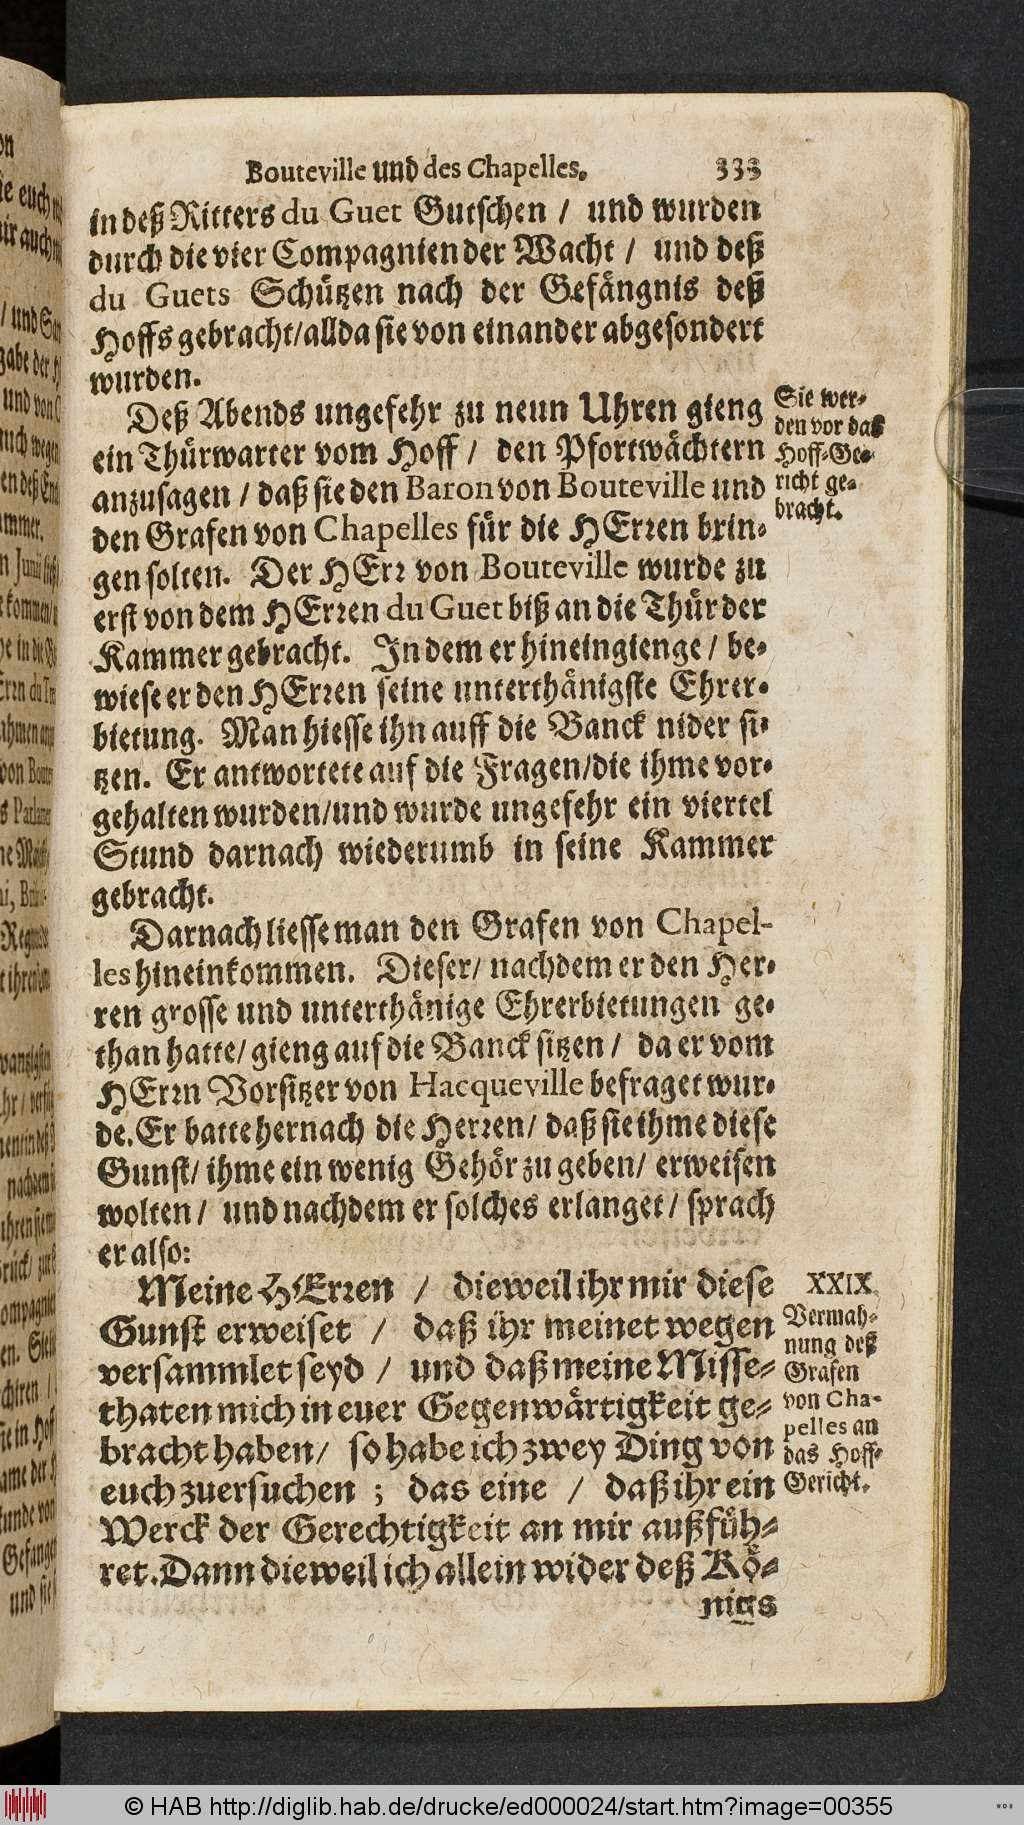 Bouteville und des Chapelles. 333
in deß Ritters du Guet Gutschen / und wurden
durch die vier Compagnien der Wacht / und deß
du Guets Schützen nach der Gefängnis deß
Hoffs gebracht/allda sie von einander abgesondert
wurden.
Deß Abends ungefehr zu neun Uhren gieng
ein Thürwarter vom Hoff / den Pfortwächtern
anzusagen / daß sie den Baron von Bouteville und
den Grafen von Chapelles für die HErren brin-
gen solten. Der HErr von Bouteville wurde zu
erst von dem HErren du Guet biß an die Thür der
Kammer gebracht. In dem er hineingienge / be-
wiese er den HErren seine unterthänigste Ehrer-
bietung. Man hiesse ihn auff die Banck nider si-
tzen. Er antwortete auf die Fragen/die ihme vor-
gehalten wurden/und wurde ungefehr ein viertel
Stund darnach wiederumb in seine Kammer
gebracht.
Sie wer-
den vor das
Hoff-Ge-
richt ge-
bracht.
Darnach liesse man den Grafen von Chapel-
les hineinkommen. Dieser/ nachdem er den Her-
ren grosse und unterthänige Ehrerbietungen ge-
than hatte/ gieng auf die Banck sitzen / da er vom
HErrn Vorsitzer von Hacqueville befraget wur-
de. Er batte hernach die Herren/ daß sie ihme diese
Gunst/ ihme ein wenig Gehör zu geben/ erweisen
wolten / und nachdem er solches erlanget / sprach
er also:
Meine HErren / dieweil ihr mir diese
Gunst erweiset / daß ihr meinet wegen
versammlet seyd / und daß meine Misse-
thaten mich in euer Gegenwärtigkeit ge-
bracht haben/ so habe ich zwey Ding von
euch zuersuchen ; das eine / daß ihr ein
Werck der Gerechtigkeit an mir außfüh-
ret. Dann dieweil ich allein wider deß Kö-
nigs
XXIX.
Vermah-
nung deß
Grafen
von Cha-
pelles an
das Hoff-
Gericht.
© HAB http://diglib.hab.de/drucke/ed000024/start.htm?image=00355